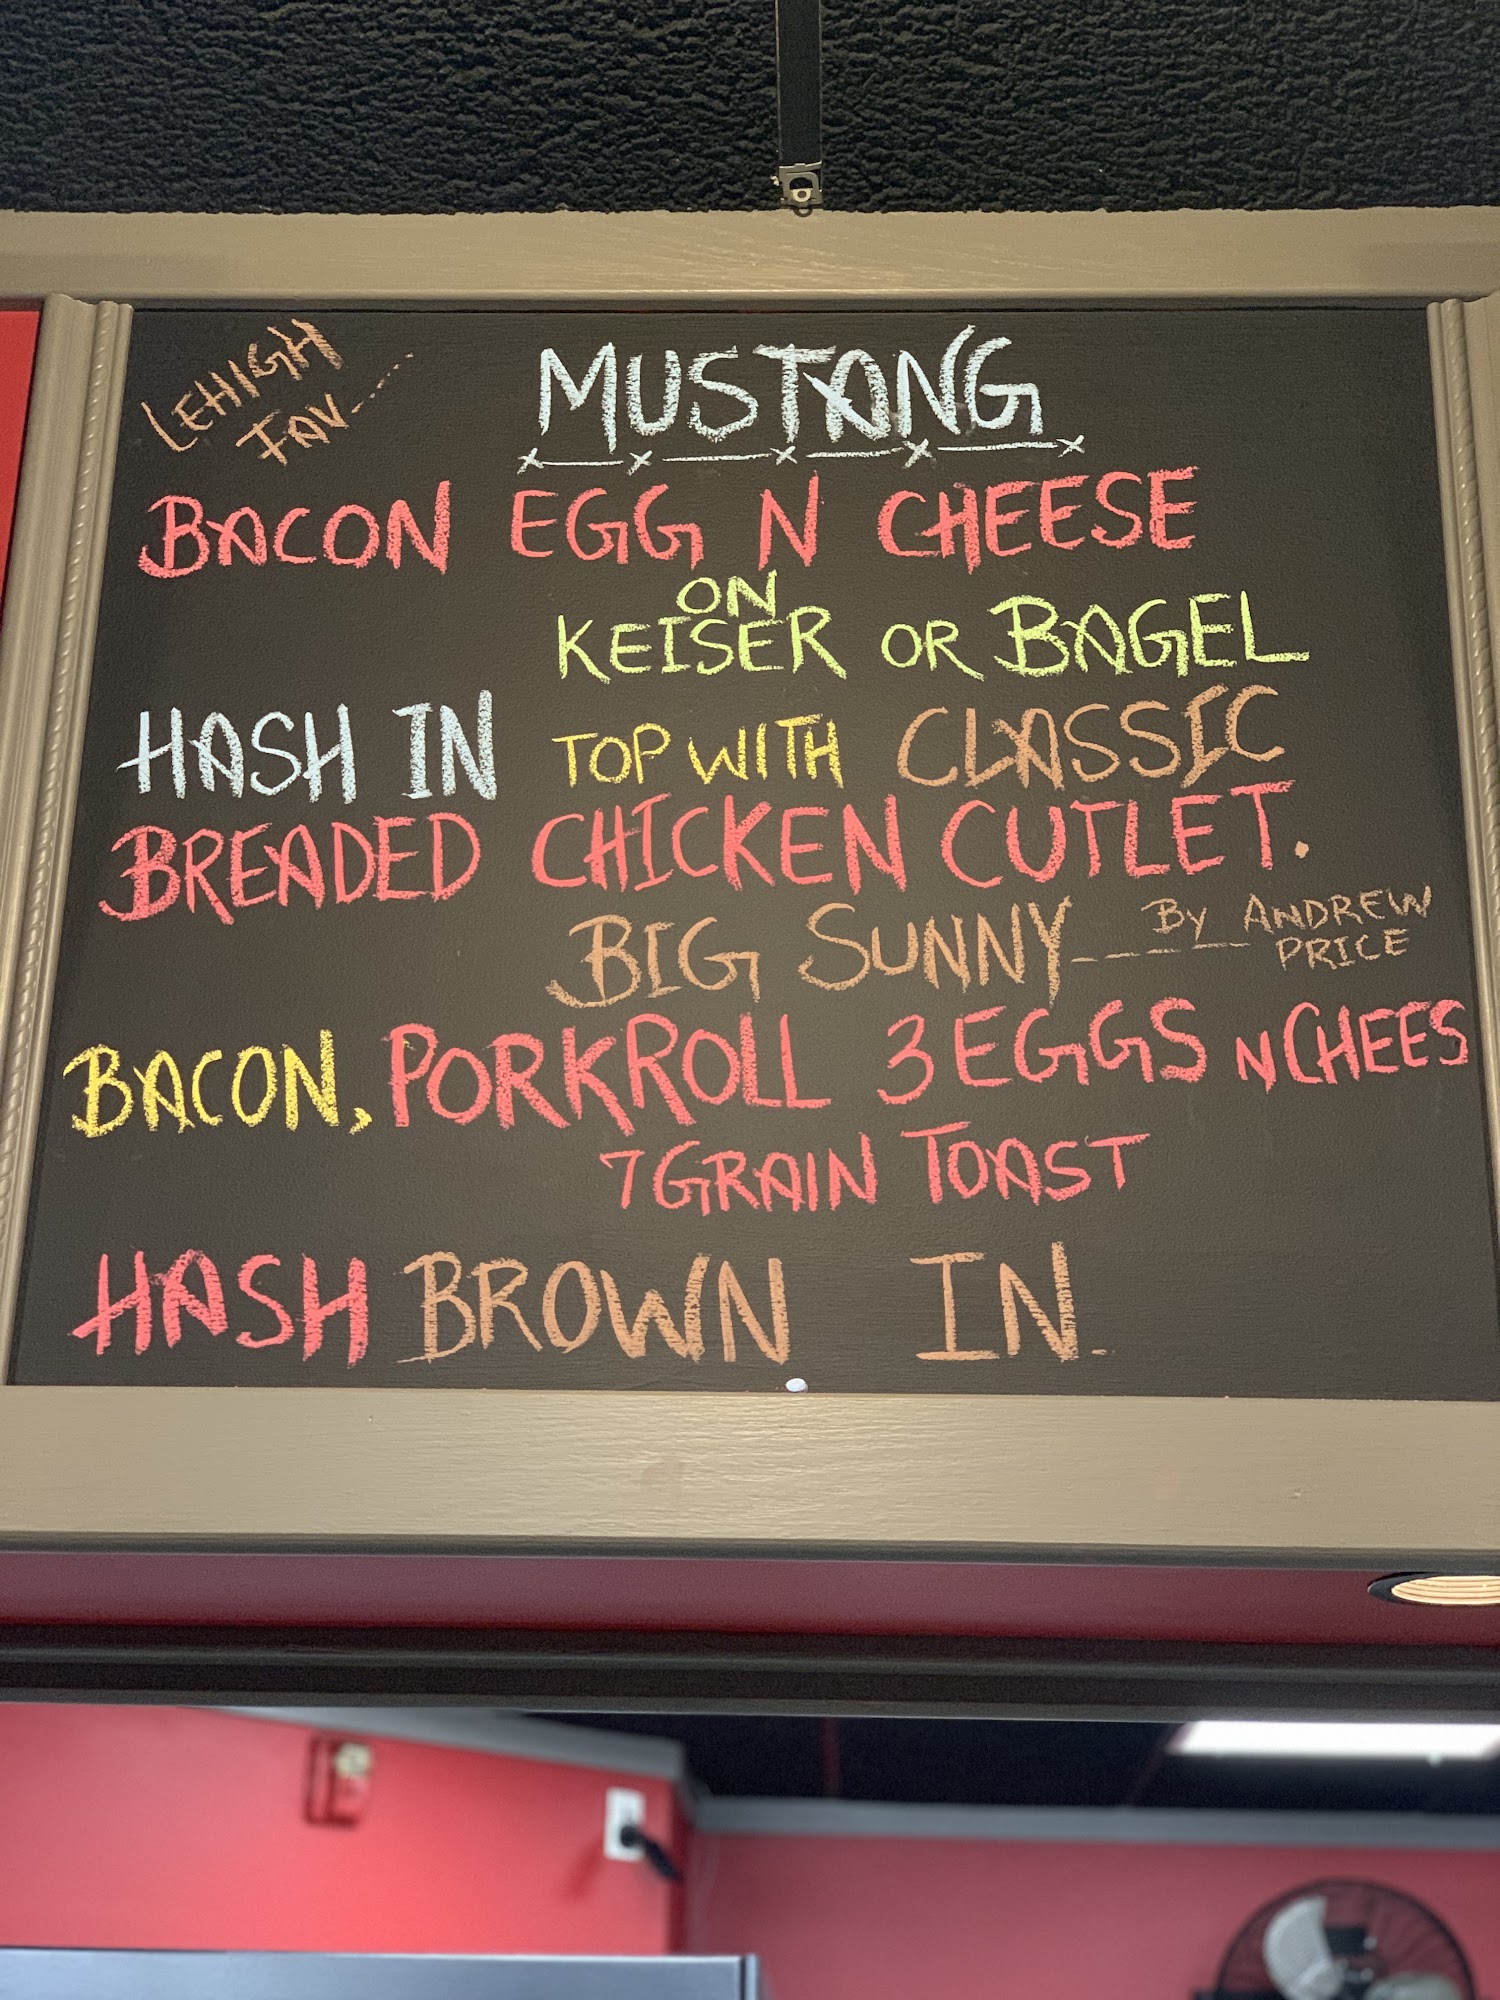 LEHIGH
FAV----
MUSTANG
BACON EGG N CHEESE
ON
KEISER OR BAGEL
HASH IN TOP WITH CLASSIC
BREADED CHICKEN CUTLET.
BIG SUNNY---- BY ANDREW
PRICE
BACON, PORKROLL 3 EGGS N CHEES
7 GRAIN TOAST
HASH BROWN IN.